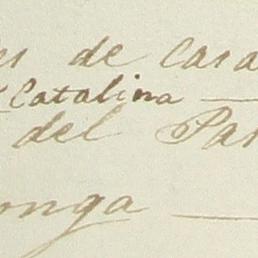 es de Casa
Catalina
del Pas
onga